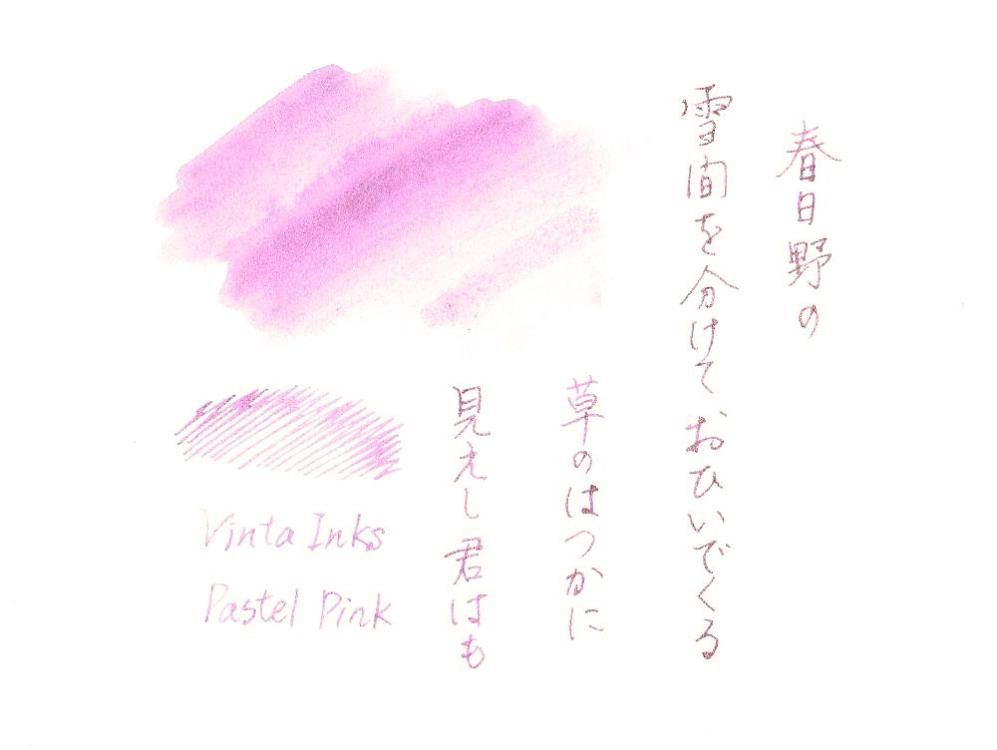 春日野の
雪間を分けておひいでくる
草のはつかに
見えし君はも
Vinta Inks
Pastel Pink